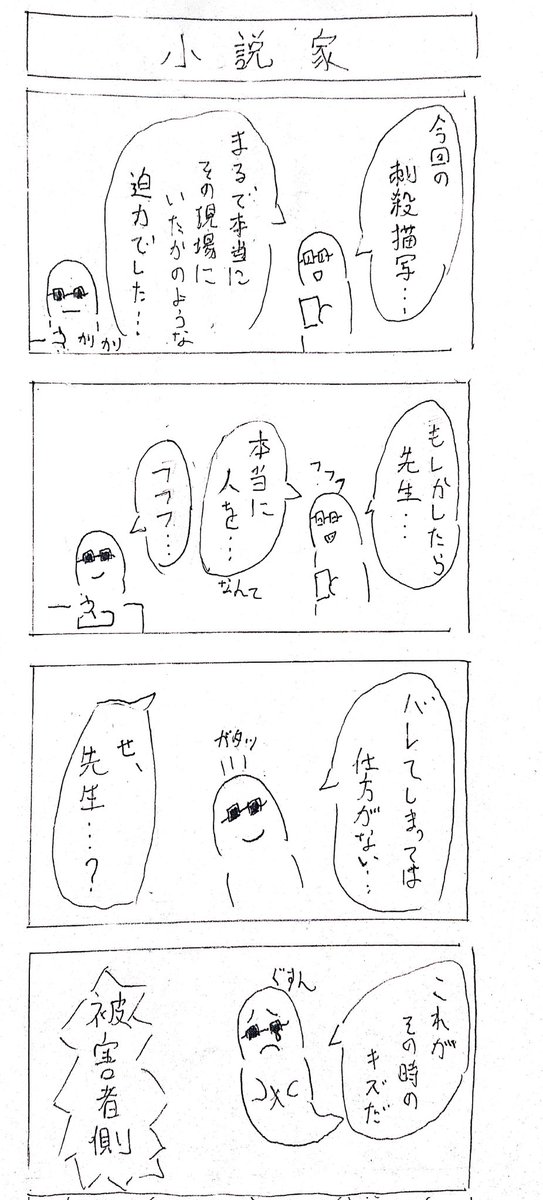 小説家
今回の
刺殺描写…
まるで本当に
その現場に
いたかのような
迫力でした…
カリカリ
もしかしたら
先生…
フフフ
本当に
人を…
なんて
フフフ…
バレてしまっては
仕方がない…
ガタッ
せ、
先生…?
これが
その時の
キズだ
ぐすん
被害者側